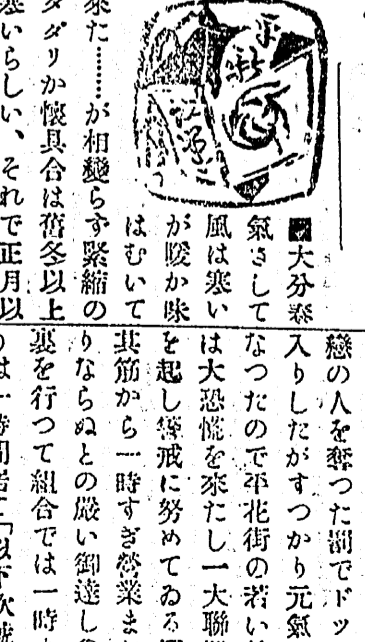 大分春
氣さして
風は寒い
が暖か味
はむいて
來た………が相變らず緊縮の
タタリか懷具合は舊冬以上
寒いらしい、それで正月以
戀の人を奪つた罰でドッ
入りしたがすつかり元氣
なつたので平北街の若い
は大恐慌を來たし一大聯
を起し警戒に努めてゐる
其筋から一時すぎ營業ま
りならぬとの嚴い御達し
裏を行つて組合では一時